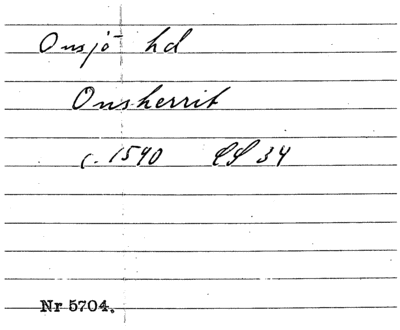 Onsjö hd
Onsherrit
c. 1540 LL 34
Nr 5704.